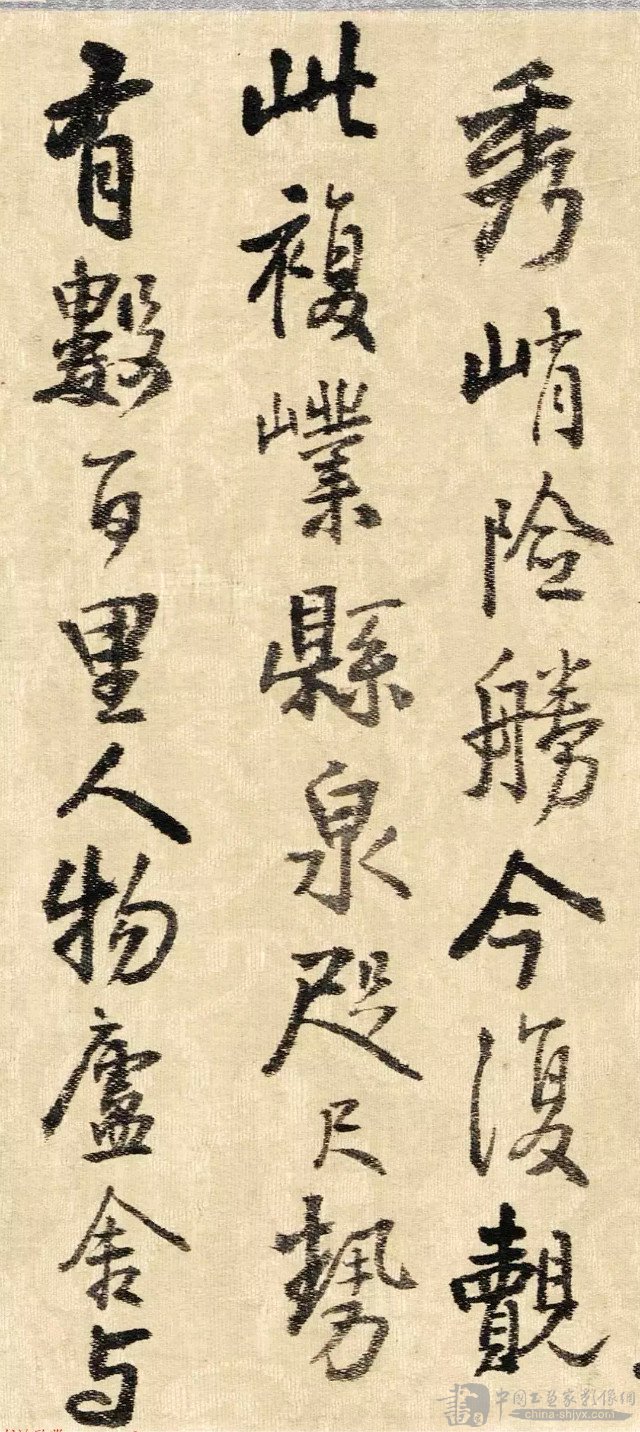 秀峭險勝今復覿
此複嶪縣泉咫尺勢
有數百里人物廬舍与
中國書画家影像網
china-shjyx.com